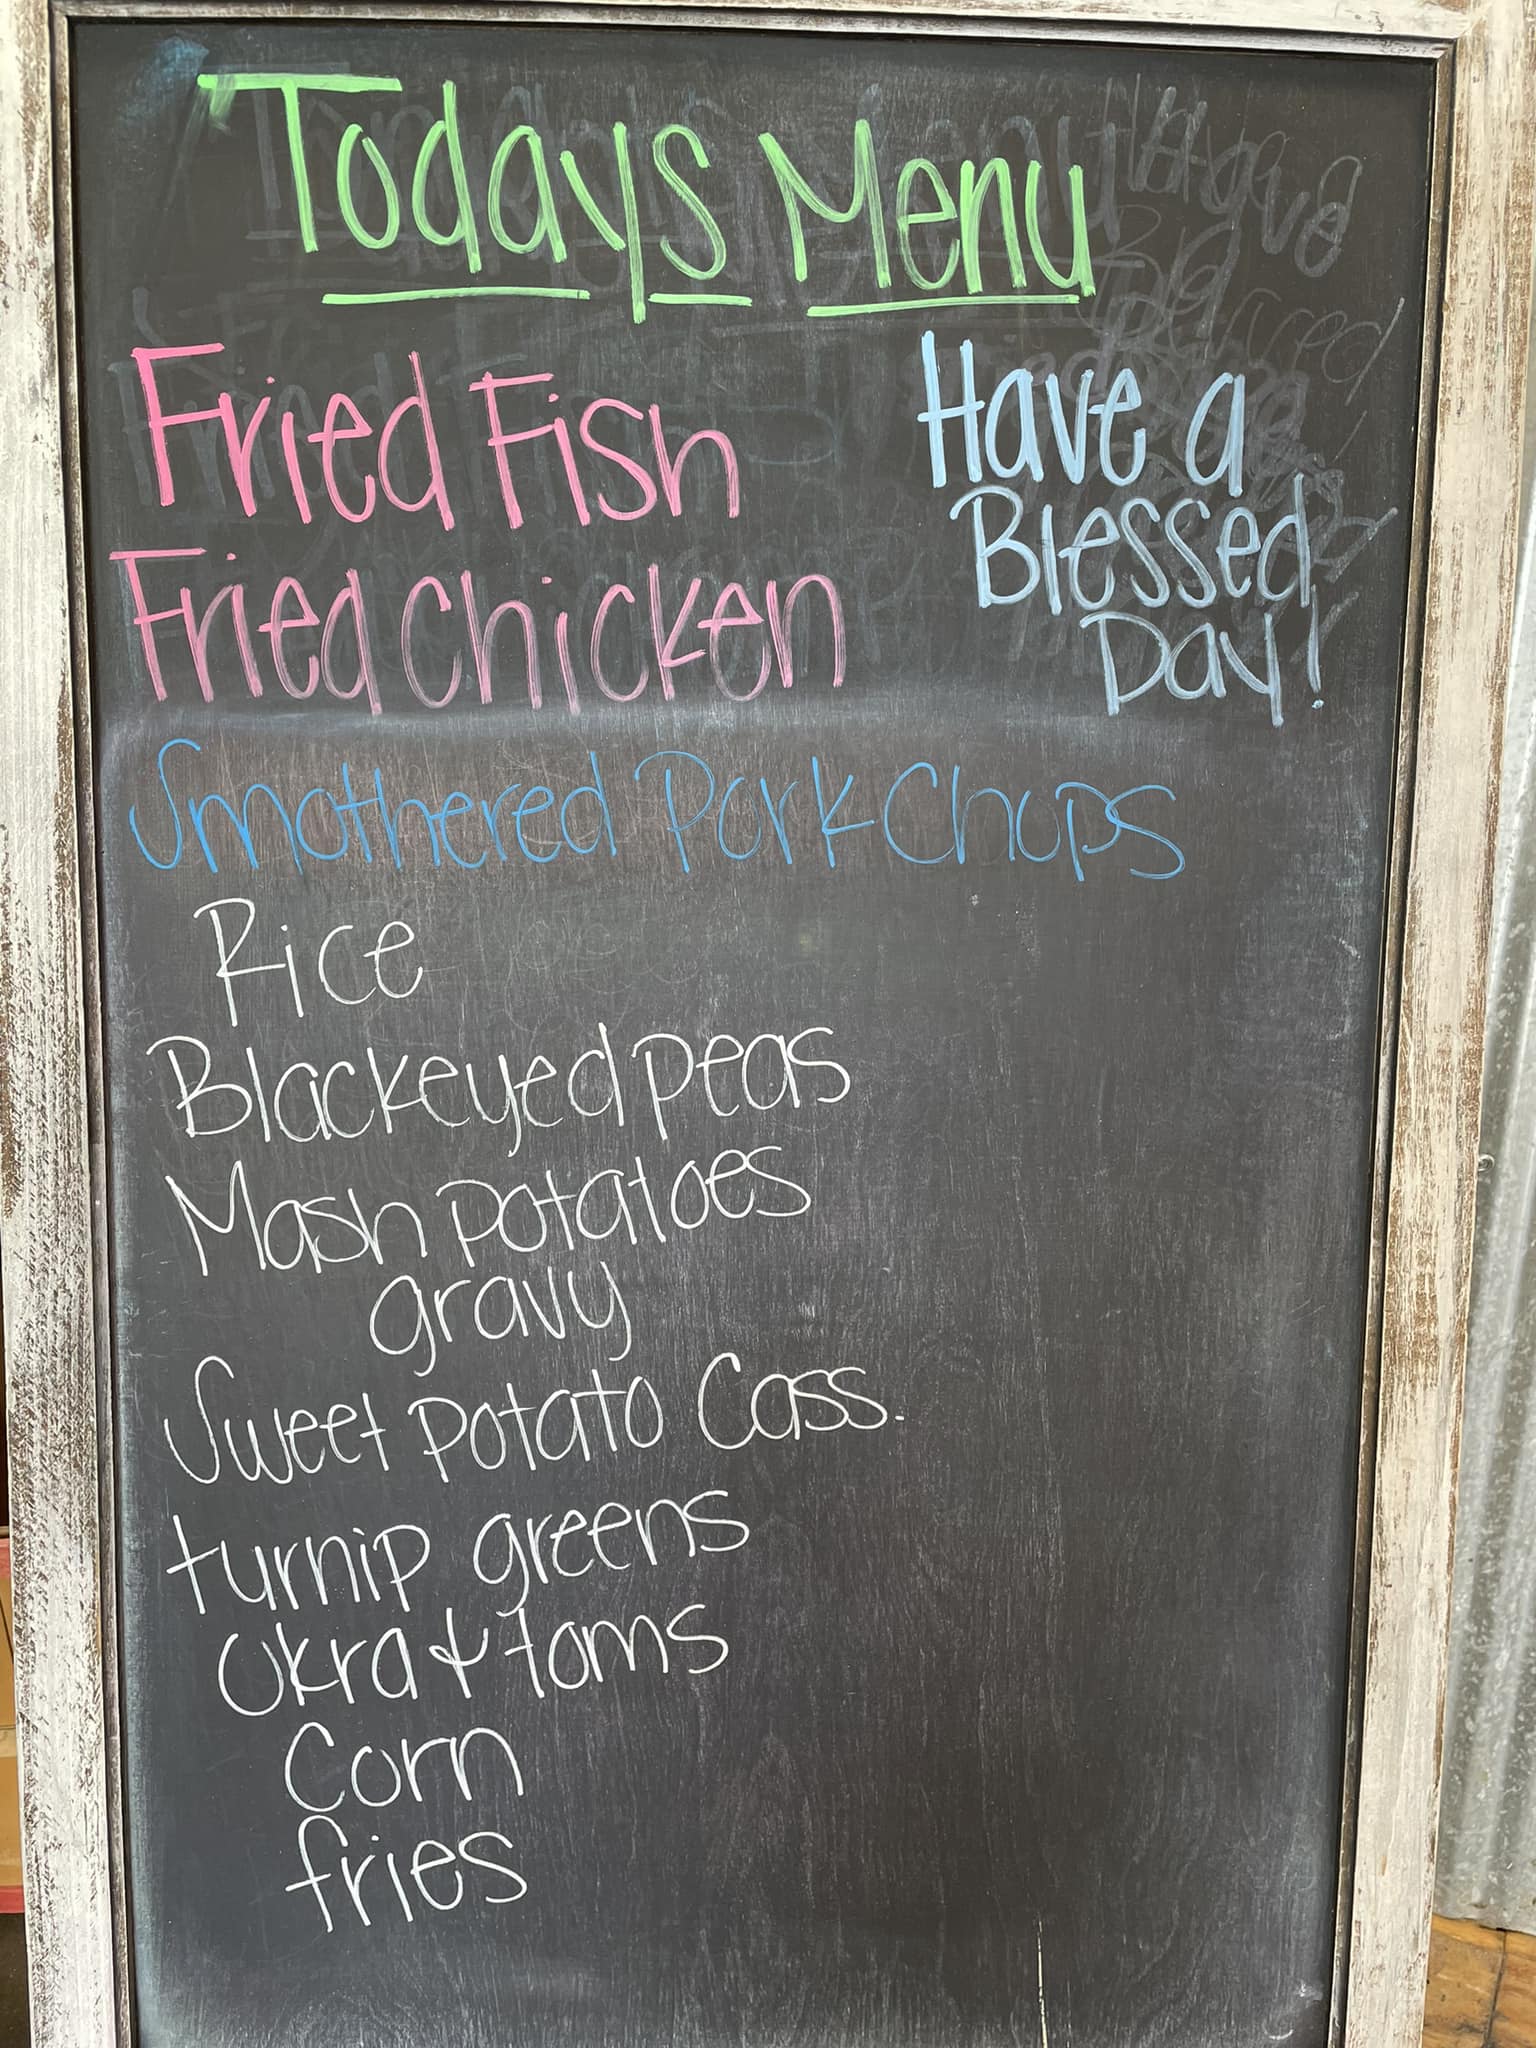 Todays Menu
Fried Fish
Have a
Blessed
Day!
Fried Chicken
Smothered Pork Chops
Rice
Blackeyed peas
Mash potatoes
gravy
Sweet potato Cass.
turnip greens
Okra & toms
Corn
fries